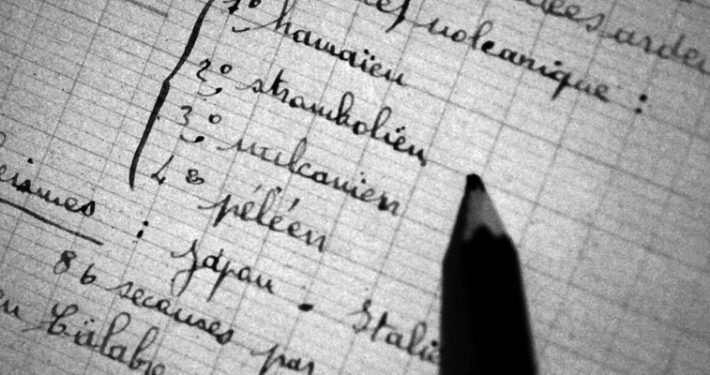 volcanique :
1° hawaïen
2° strombolien
3° vulcanien
4° péléen
: Japan . Italie
86 secousses par